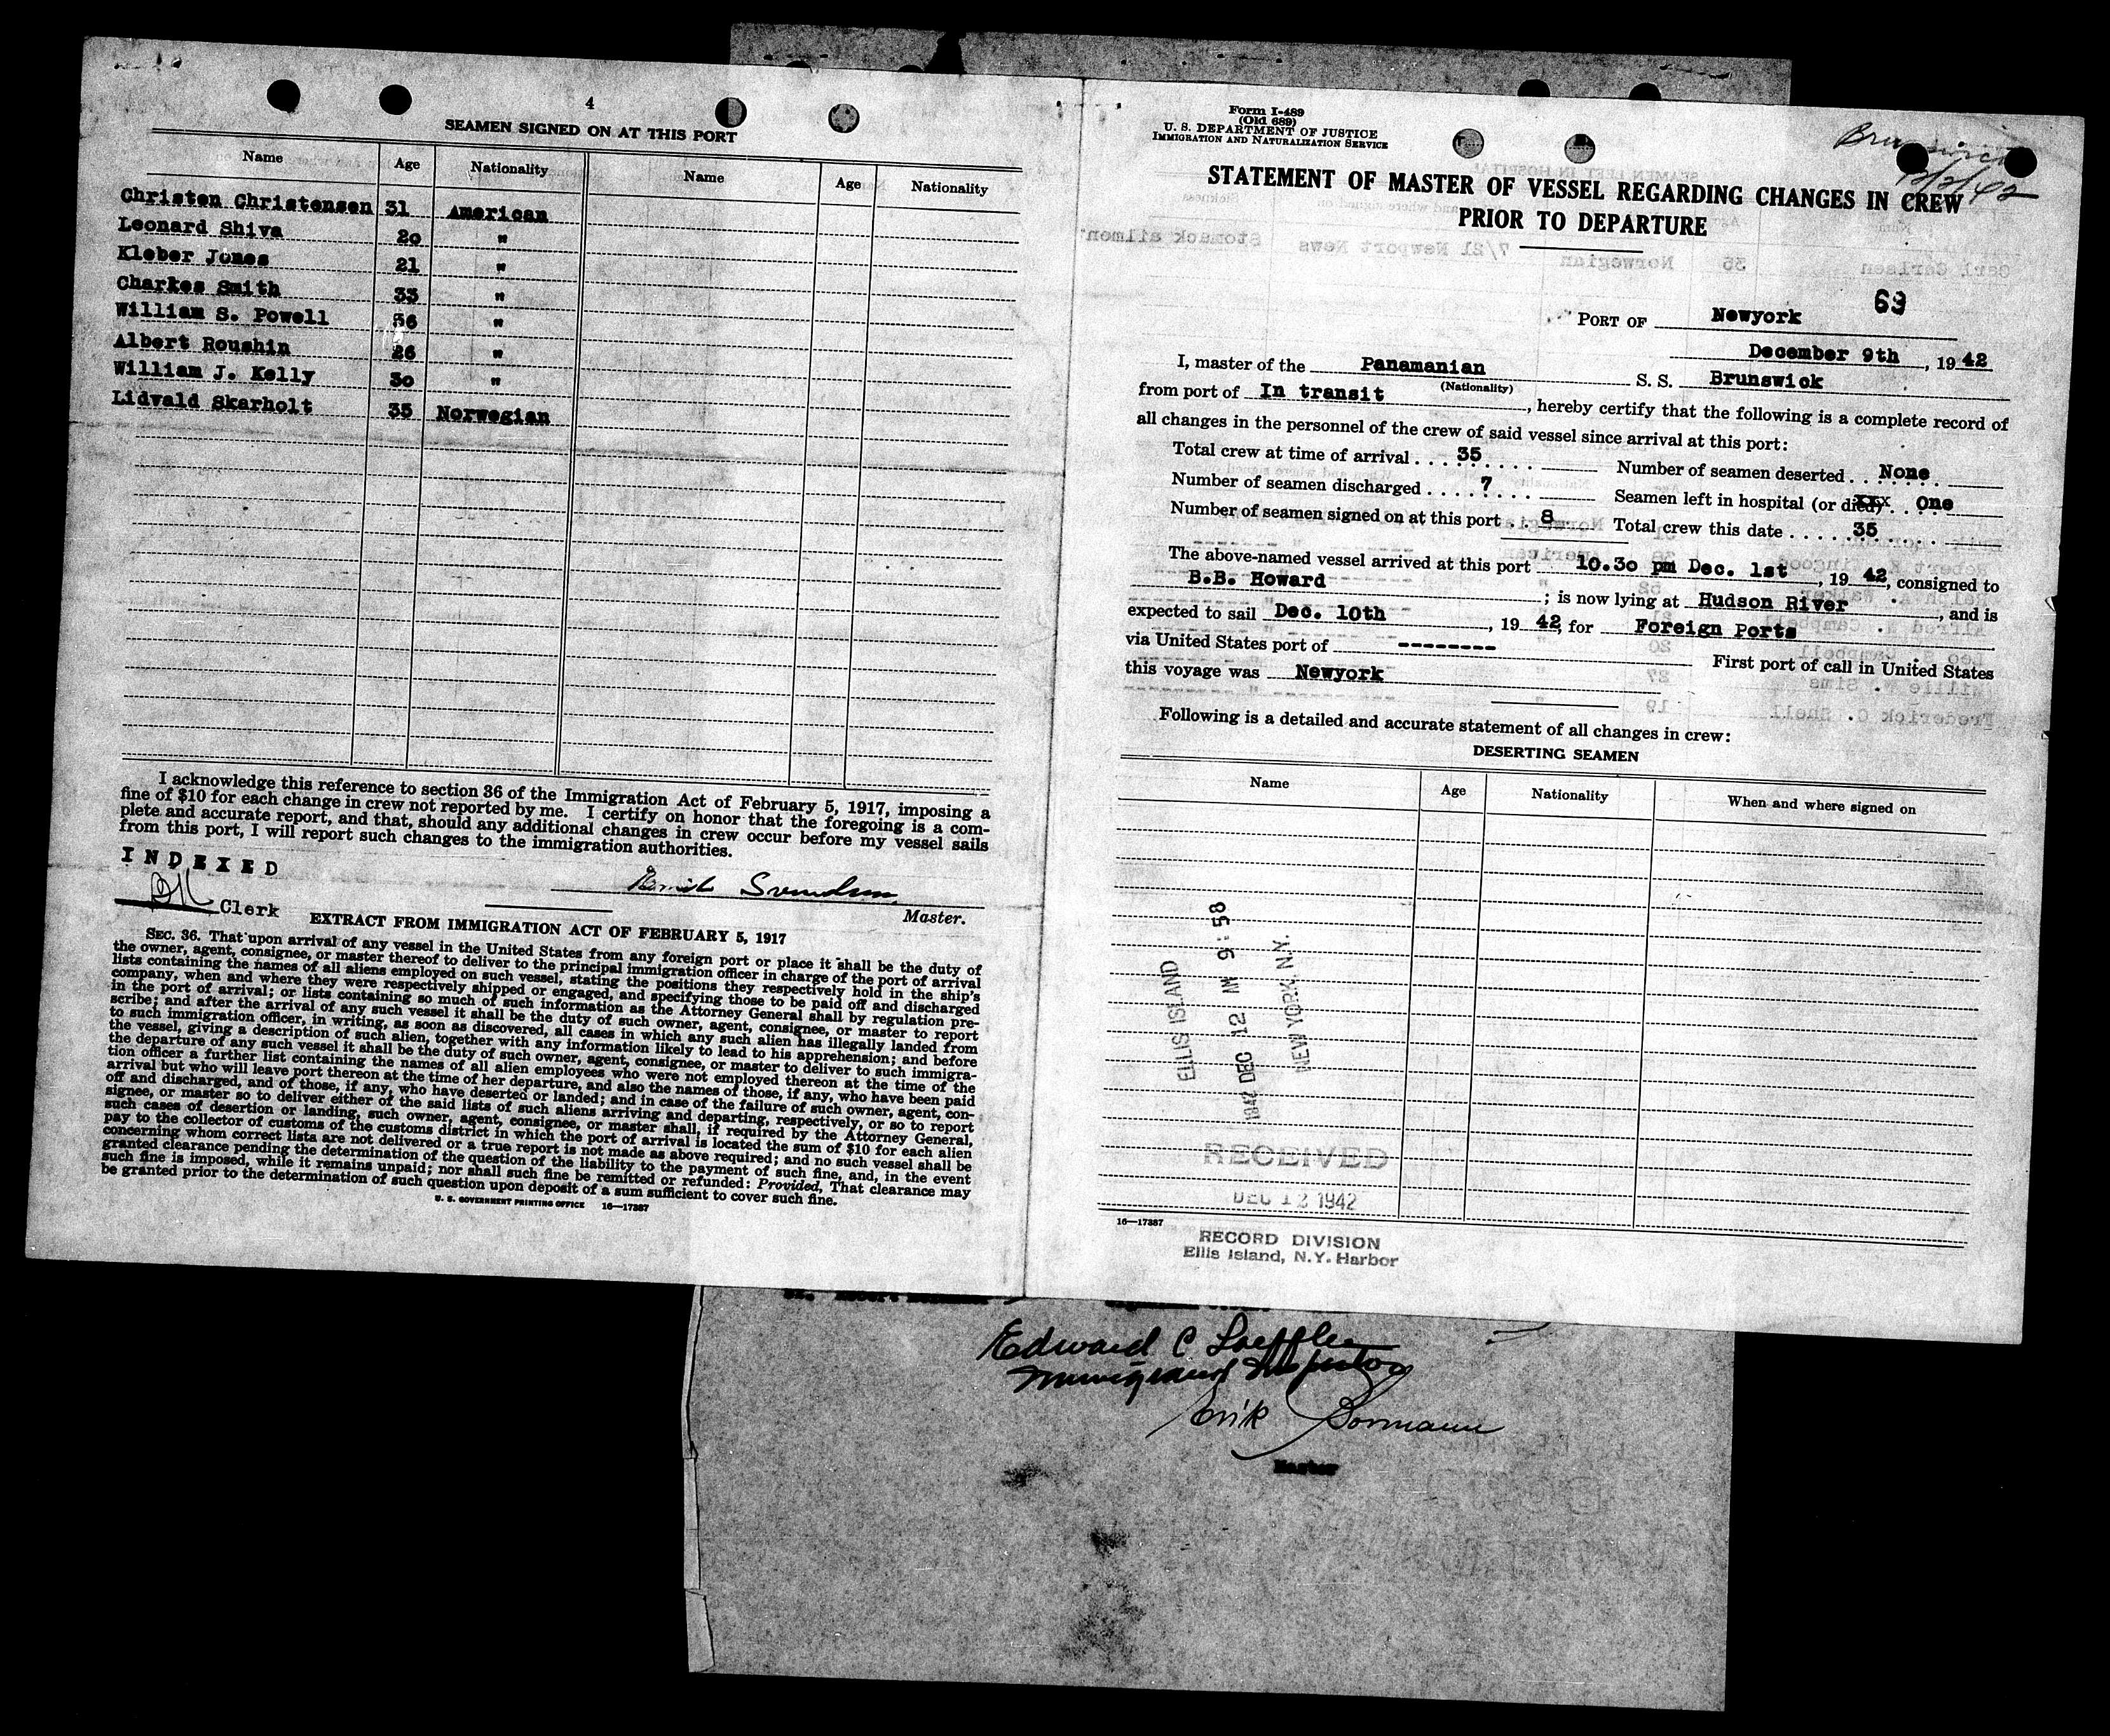 4
SEAMEN SIGNED ON AT THIS PORT
Name Age Nationality Name Age Nationality
Christen Christensen 31 American
Leonard Shiva 20 "
Kleber Jones 21 "
Charkes Smith 33 "
William S. Powell 36 "
Albert Roushin 26 "
William J. Kelly 30 "
Lidvald Skarholt 35 Norwegian
I acknowledge this reference to section 36 of the Immigration Act of February 5, 1917, imposing a
fine of $10 for each change in crew not reported by me. I certify on honor that the foregoing is a com-
plete and accurate report, and that, should any additional changes in crew occur before my vessel sails
from this port, I will report such changes to the immigration authorities.
INDEXED
Clerk
Master.
EXTRACT FROM IMMIGRATION ACT OF FEBRUARY 5, 1917
SEC. 36. That upon arrival of any vessel in the United States from any foreign port or place it shall be the duty of
the owner, agent, consignee, or master thereof to deliver to the principal immigration officer in charge of the port of arrival
lists containing the names of all aliens employed on such vessel, stating the positions they respectively hold in the ship's
company, when and where they were respectively shipped or engaged, and specifying those to be paid off and discharged
in the port of arrival; or lists containing so much of such information as the Attorney General shall by regulation pre-
scribe; and after the arrival of any such vessel it shall be the duty of such owner, agent, consignee, or master to report
to such immigration officer, in writing, as soon as discovered, all cases in which any such alien has illegally landed from
the vessel, giving a description of such alien, together with any information likely to lead to his apprehension; and before
the departure of any such vessel it shall be the duty of such owner, agent, consignee, or master to deliver to such immigra-
tion officer a further list containing the names of all alien employees who were not employed thereon at the time of the
arrival but who will leave port thereon at the time of her departure, and also the names of those, if any, who have been paid
off and discharged, and of those, if any, who have deserted or landed; and in case of the failure of such owner, agent, con-
signee, or master so to deliver either of the said lists of such aliens arriving and departing, respectively, or so to report
such cases of desertion or landing, such owner, agent, consignee, or master shall, if required by the Attorney General,
pay to the collector of customs of the customs district in which the port of arrival is located the sum of $10 for each alien
concerning whom correct lists are not delivered or a true report is not made as above required; and no such vessel shall be
granted clearance pending the determination of the question of the liability to the payment of such fine, and, in the event
such fine is imposed, while it remains unpaid; nor shall such fine be remitted or refunded: Provided, That clearance may
be granted prior to the determination of such question upon deposit of a sum sufficient to cover such fine.
U. S. GOVERNMENT PRINTING OFFICE 16—17387
Form I-489
(Old 689)
U. S. DEPARTMENT OF JUSTICE
IMMIGRATION AND NATURALIZATION SERVICE
Brunswick
STATEMENT OF MASTER OF VESSEL REGARDING CHANGES IN CREW
PRIOR TO DEPARTURE
69
PORT OF Newyork
December 9th, 1942
I, master of the Panamanian S. S. Brunswick
(Nationality)
from port of In transit, hereby certify that the following is a complete record of
all changes in the personnel of the crew of said vessel since arrival at this port:
Total crew at time of arrival 35 Number of seamen deserted None
Number of seamen discharged 7 Seamen left in hospital (or died) xxx One
Number of seamen signed on at this port 8 Total crew this date 35
The above-named vessel arrived at this port 10.30 pm Dec. 1st, 1942, consigned to
B.B. Howard; is now lying at Hudson River, and is
expected to sail Dec. 10th, 1942, for Foreign Ports
via United States port of -------- First port of call in United States
this voyage was Newyork
Following is a detailed and accurate statement of all changes in crew:
DESERTING SEAMEN
Name Age Nationality When and where signed on
ELLIS ISLAND
1942 DEC 12 AM 9:58
NEW YORK N.Y.
RECEIVED
DEC 12 1942
16—17387
RECORD DIVISION
Ellis Island, N.Y. Harbor
Edward C Loeffler
Immigrant Inspector
Erik Bormann
Master